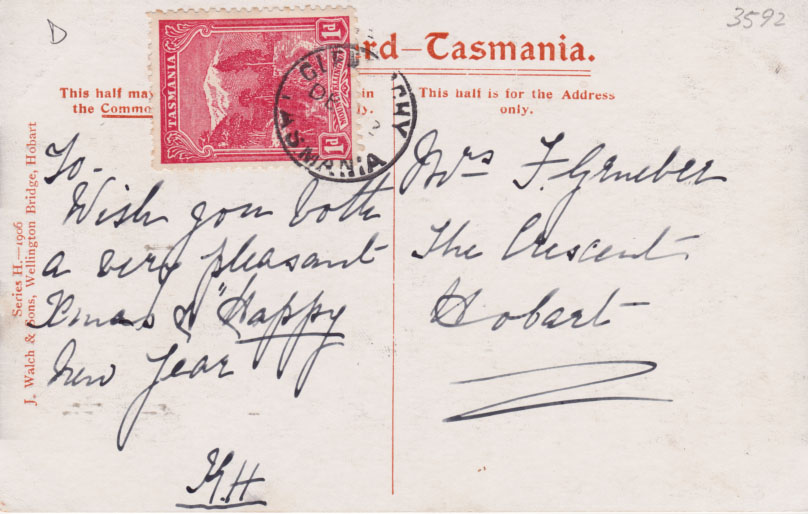 D
3592
rd–Tasmania.
This half may in
the Commo y.
This half is for the Address
only.
1d 1d
TASMANIA
MOUNT WELLINGTON
ASMANIA
To.
Wish you both
a very pleasant
Xmas & "Happy
New Year
Mrs F. Grueber
The Crescent
Hobart
Series H.—1906
J. Walch & Sons, Wellington Bridge, Hobart